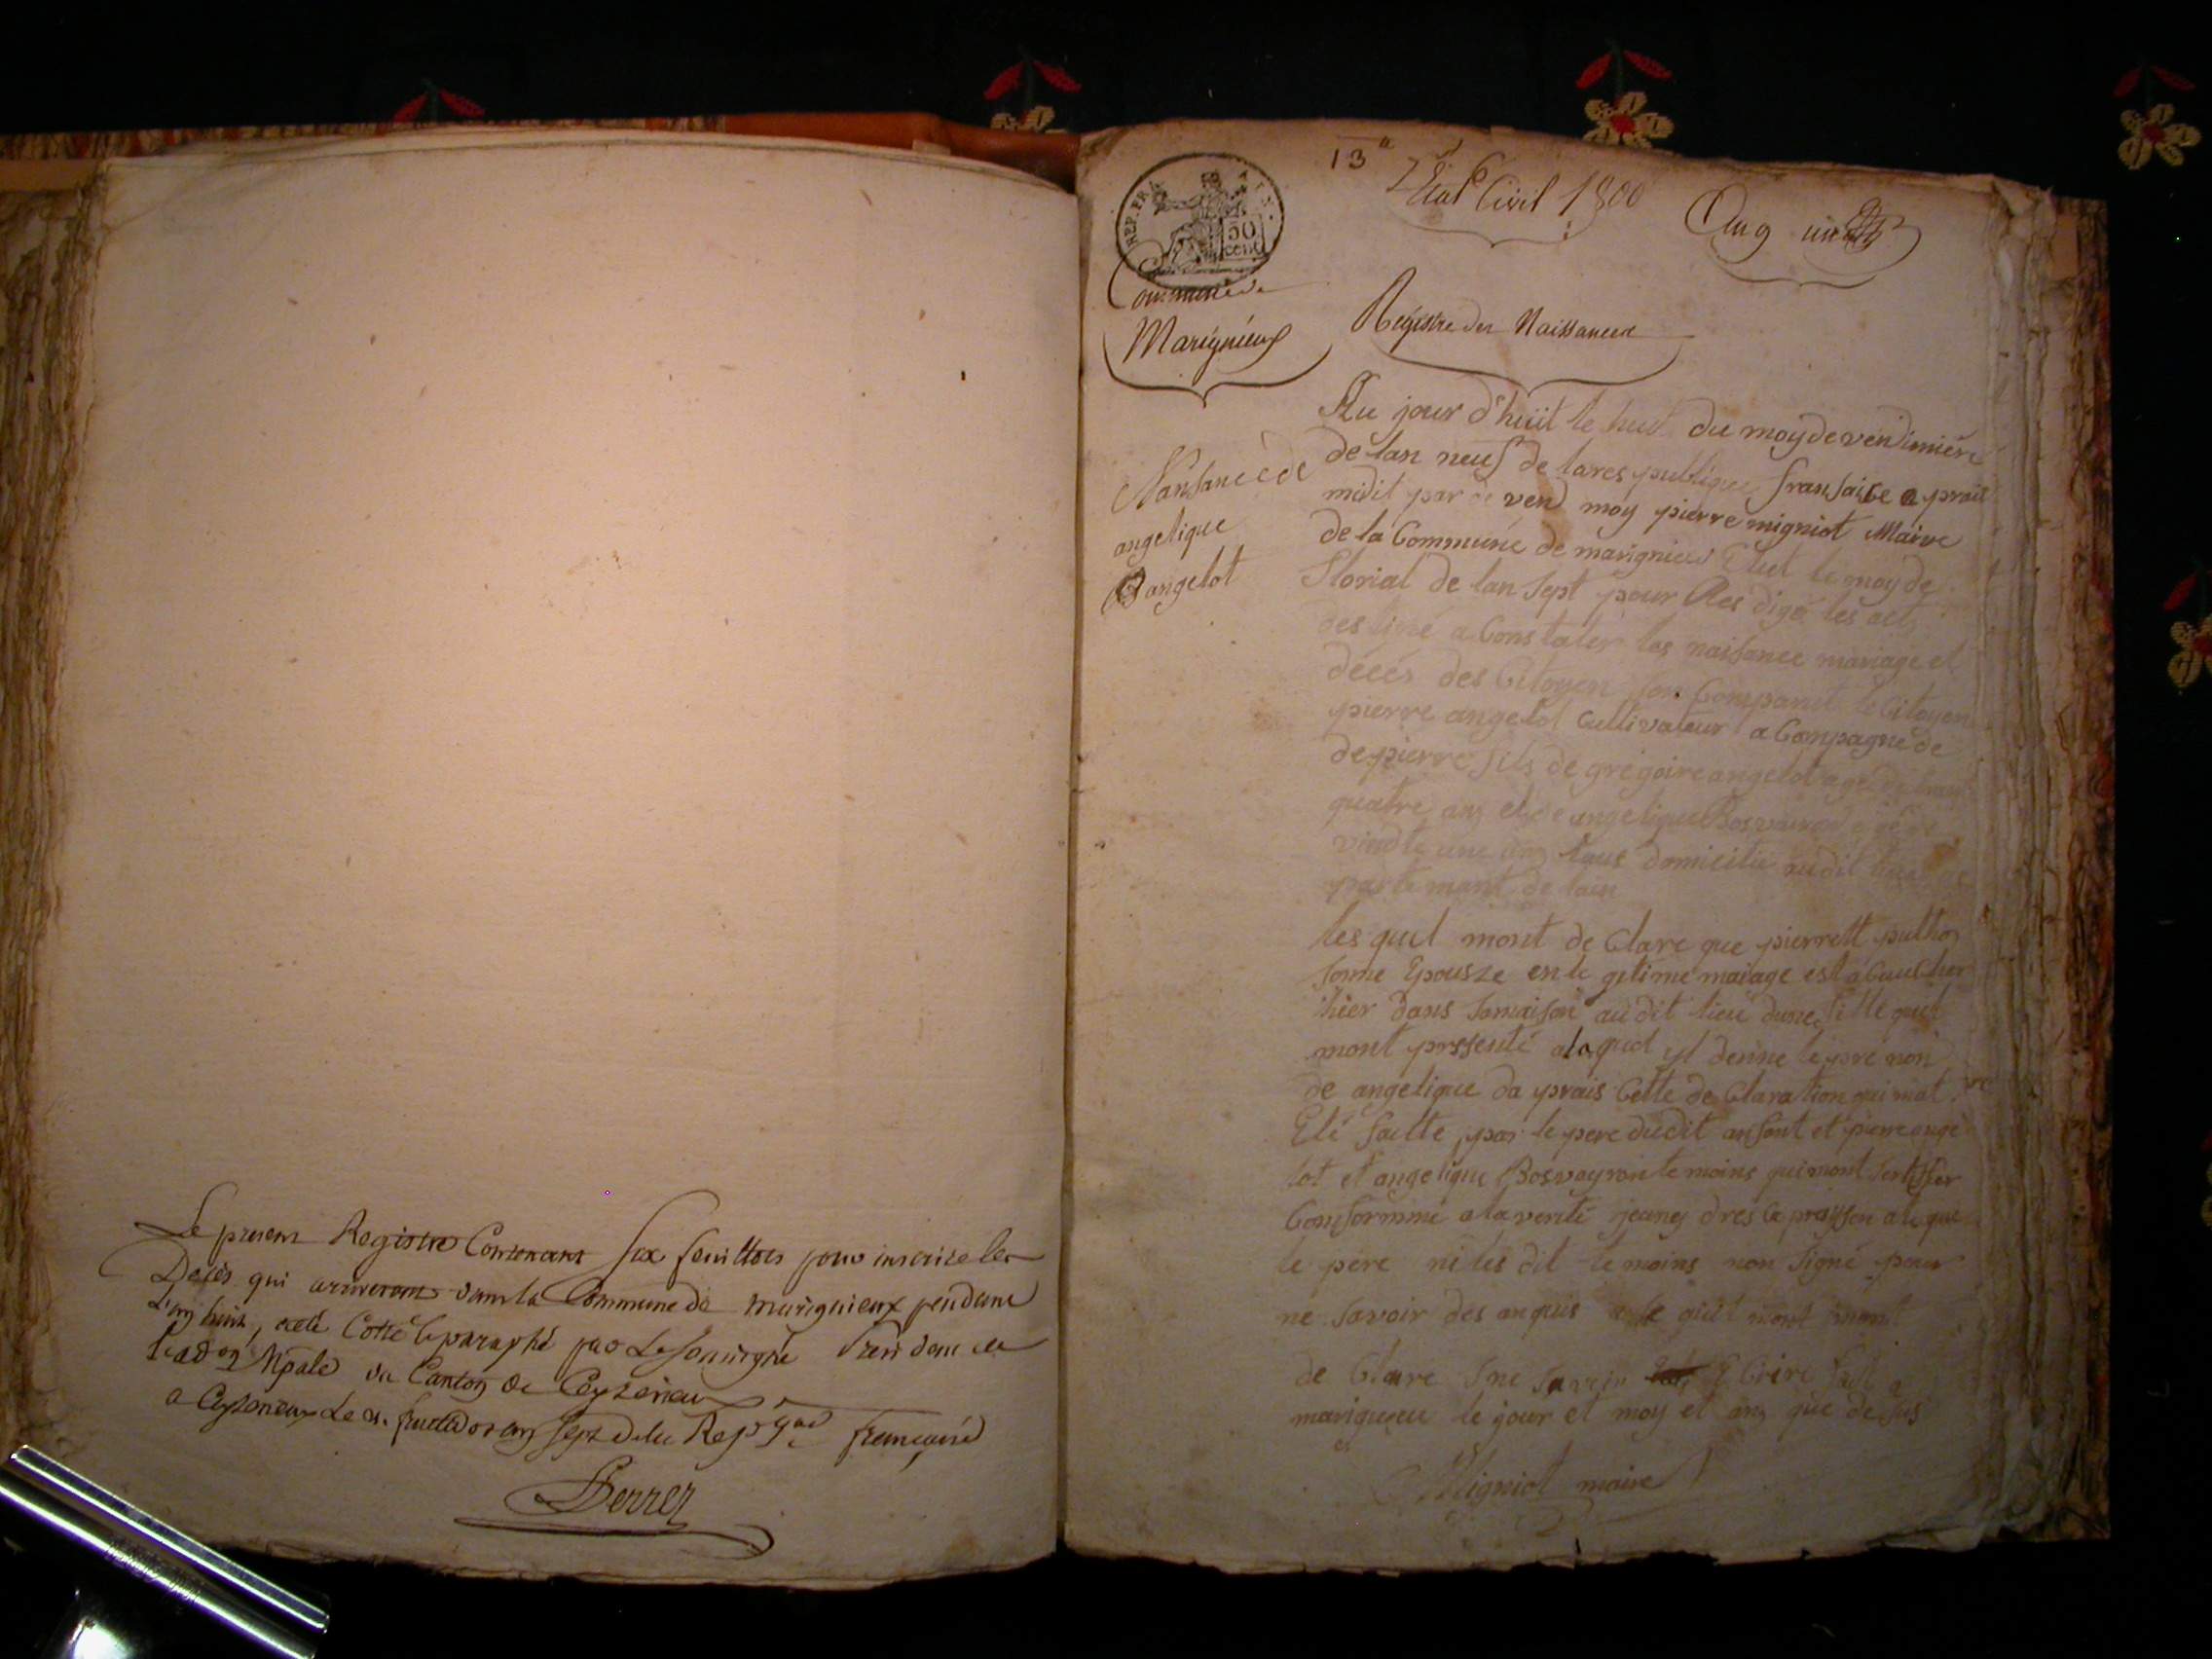 Le present Registre Contenant six feuillets pour inscrire les
Décès qui arriveront dans la Commune de marignieux pendant
L'an huit, a été Cotté & paraphé par Le soussigné Président de
L'adon Mpale du Canton de Ceyzerieux
a Ceyzerieux Le fructidor an sept de la Repque française
Perret
13e
Etat Civil 1800
An 9
REP. FRA
50
cent
Commune de
Marignieux
Registre des Naissances
Naisance de
angelique
angelot
Au jour d'huit le huit du moy de vendimiere
de lan neuf de la res publique fransaise a prait
midit par de vend moy pierre migniot Maire
de la Commune de marignieu Elut le moy de
florial de lan sept pour Res digé les act
des tiné a Constater les naisance mariage et
décés des Citoyen son Comparut le Citoyen
pierre angelot Cultivateur a Compagne de
de pierre fils de gregoire angelot age de trant
quatre ans et de angelique Bosvoyron age de
vindte une ans tous domicilie au dit lieu
partemant de lain
les quel mont de Clare que pierrett putho
sonne Epousze en le gitime mariage est a Cuucher
hier dans sa maison au dit lieu dune fille quil
mont prssenté a la quel yl denne le pre non
de angelique da prais Cette de Claration qui mat
Eté faitte par le pere du dit ansant et pierre ange
lot et angelique Bosvoyron te moins qui mont
Conformme a la verité je anej dres Ce
le pere ni les dit te moins non signé pour
ne savoir des anquis
de Clare ne savoir E Crire fait a
marigneu le jour et moy et ans que de sus
Migniot maire